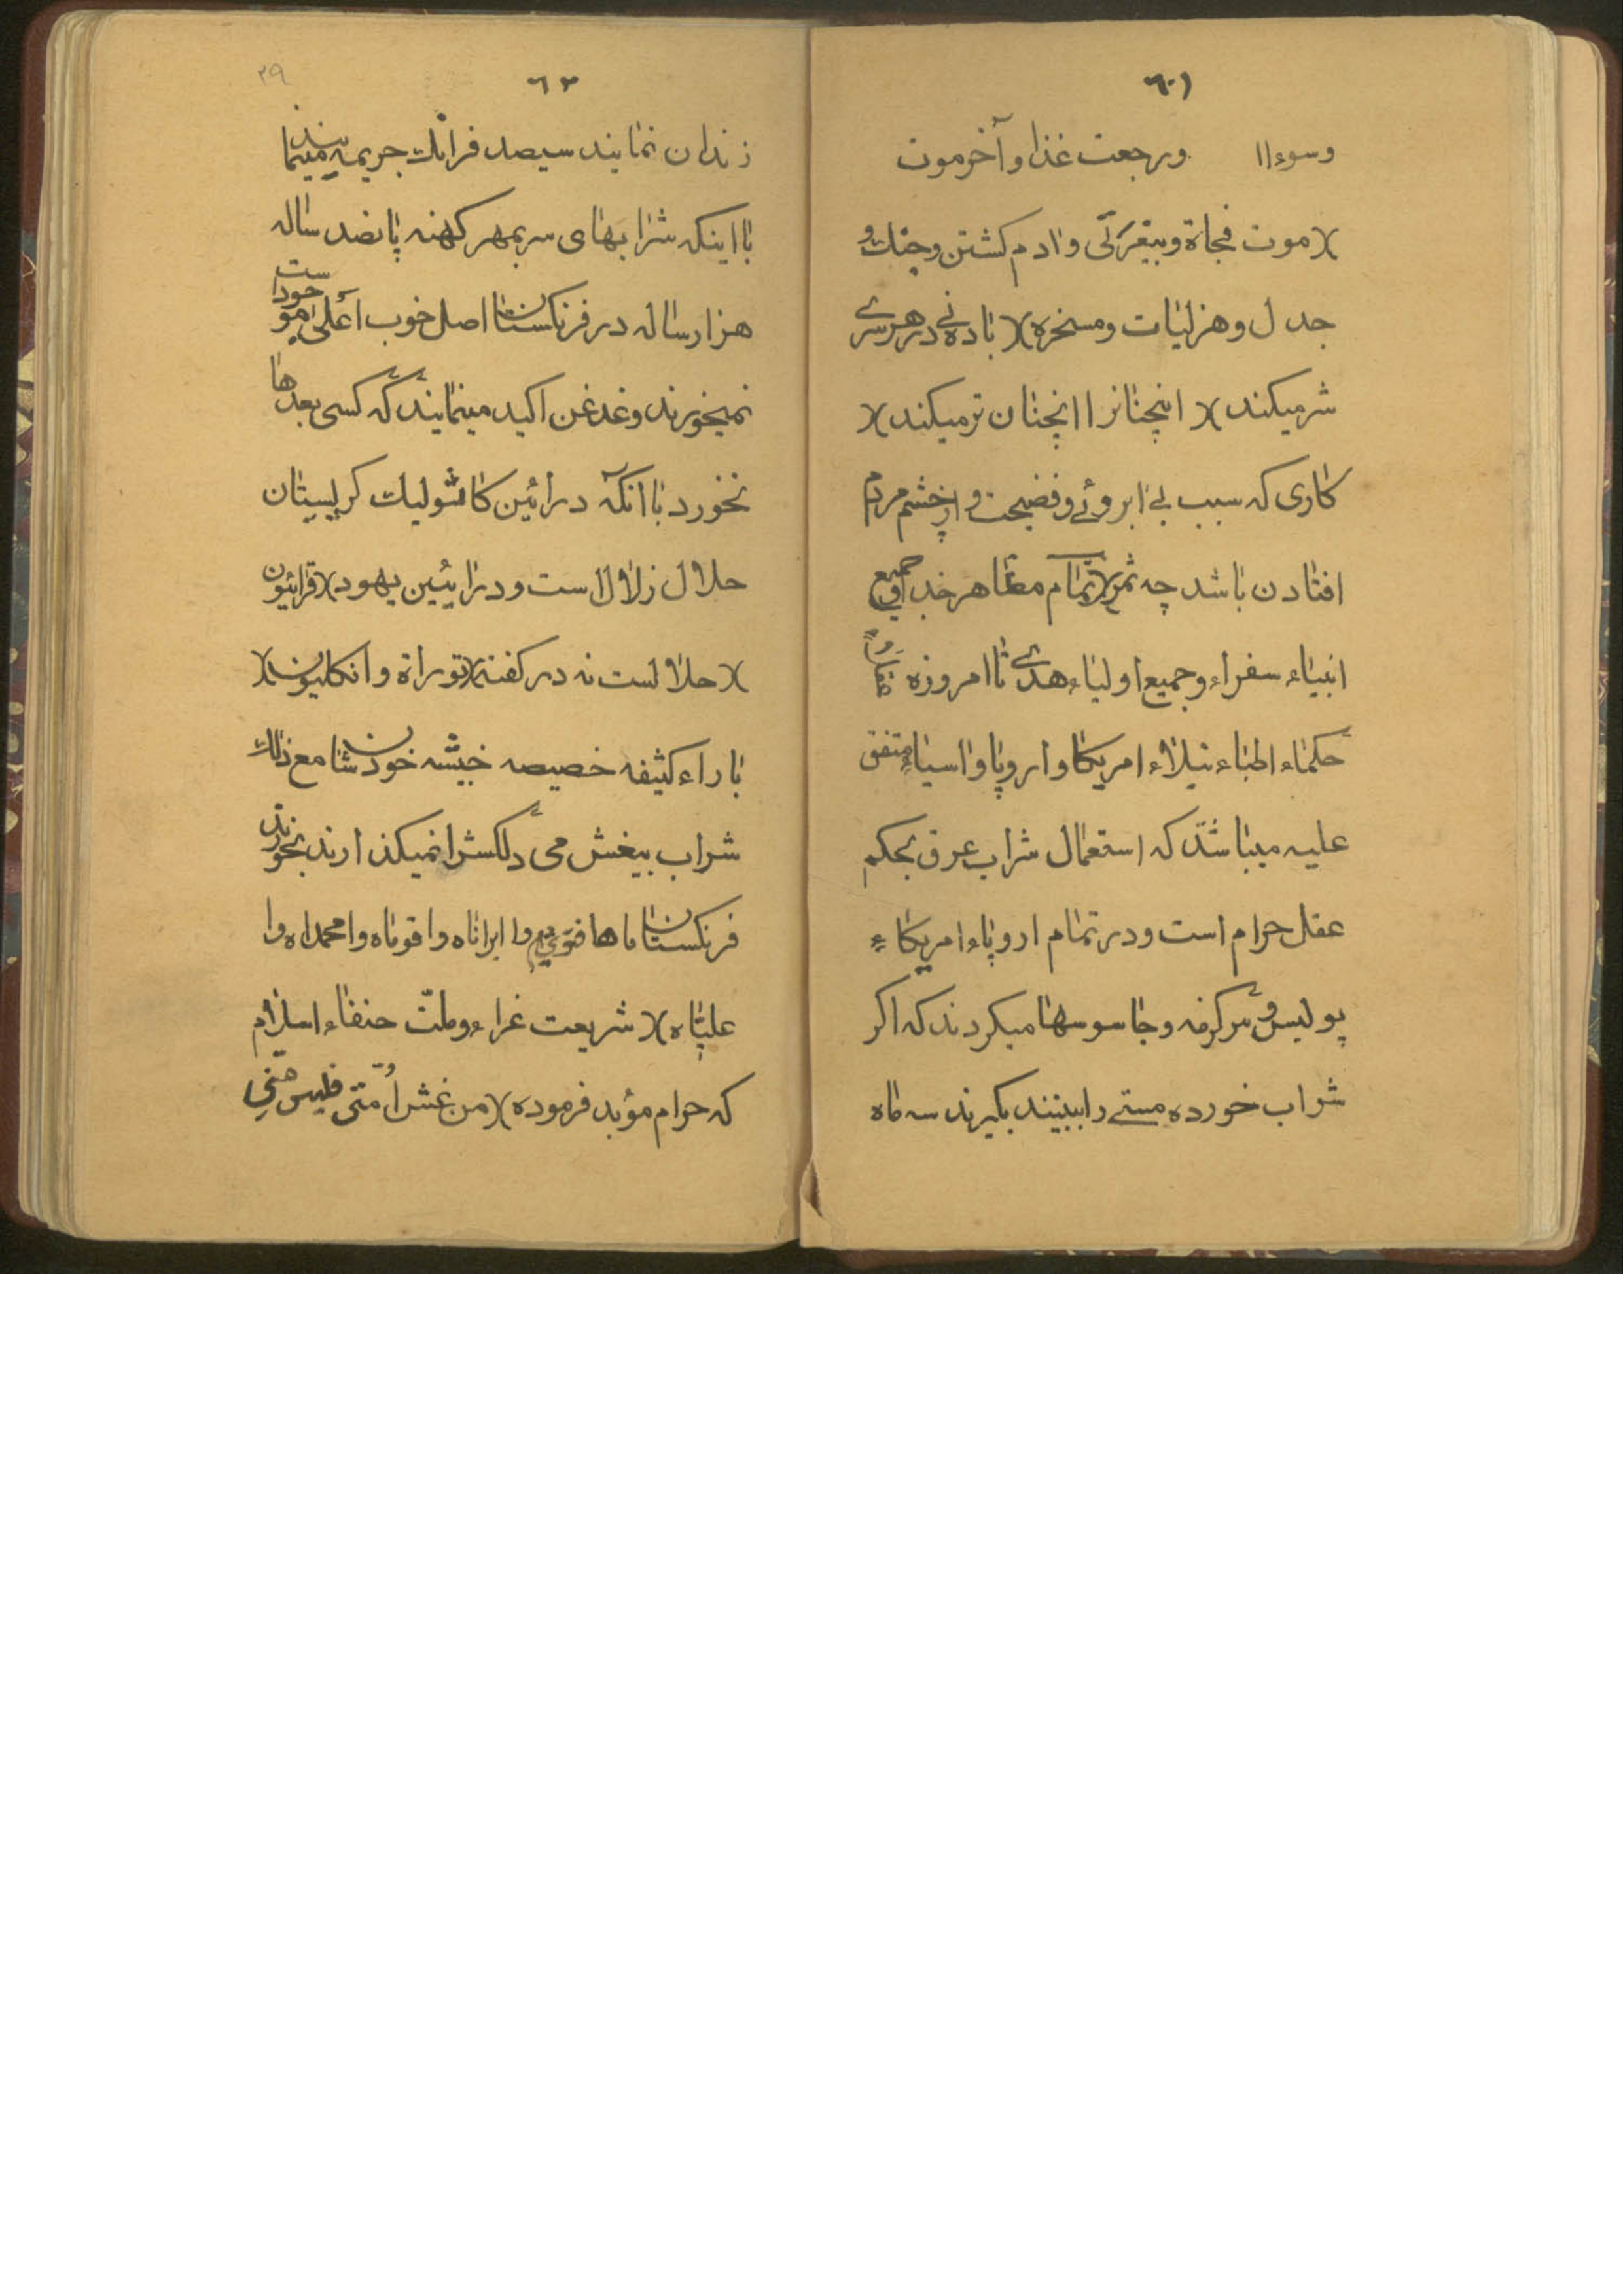 ٦٠١
وسوء ١١ ورجعت غذا و آخر موت
)( موت فجاة و بیقرتی و ادم کشتن و جنك و
جدل و هزلیات و مسخره )( باده نی در هر سری
شر میکند )( اینچنانرا انچنان تر میکند )(
کاری که سبب بی ابروئی و فضیحت و از چشم مردم
افتادن باشد چه ثمر )( تمام مظاهر خدا و جمیع
انبیاء سفراء و جمیع اولیاء هدی تا امروزه
حکماء اطباء نبلاء امریکا و اروپا و اسیاء متفق
علیه میباشند که استعمال شراب عرق بحکم
عقل حرام است و در تمام اروپاء امریکاء
پولیس و سرکزمه و جاسوسها میکردند که اکر
شراب خورده مستی را ببینند بکیرند سه ماه
٦٢
٢٩
زندان نمایند سیصد فرانك جریمه مینمایند
با اینکه شرابهای سر بمهر کهنه پانصد ساله
هزار ساله در فرنکستان اصل خوب اعلی موجود است
نمیخورند و غدغن اکید مینمایند که کسی بعدها
نخورد با انکه در ائین کاثولیك کریستان
حلال زلال است و در ائین یهود )( قرائیون
)( حلالست نه در کفته )( توراة و انکلیون )(
باراء کثیفه خصیصه خبیثه خودشان مع ذلك
شراب بیغش می دلکش را نمیکذارند بخورند
فرنکستان ماها وا ایراناه وا قوماه وا محمداه وا
علیاه )( شریعت غراء و ملت حنفاء اسلام
که حرام مؤبد فرموده )( من غش امتی فلیس منی